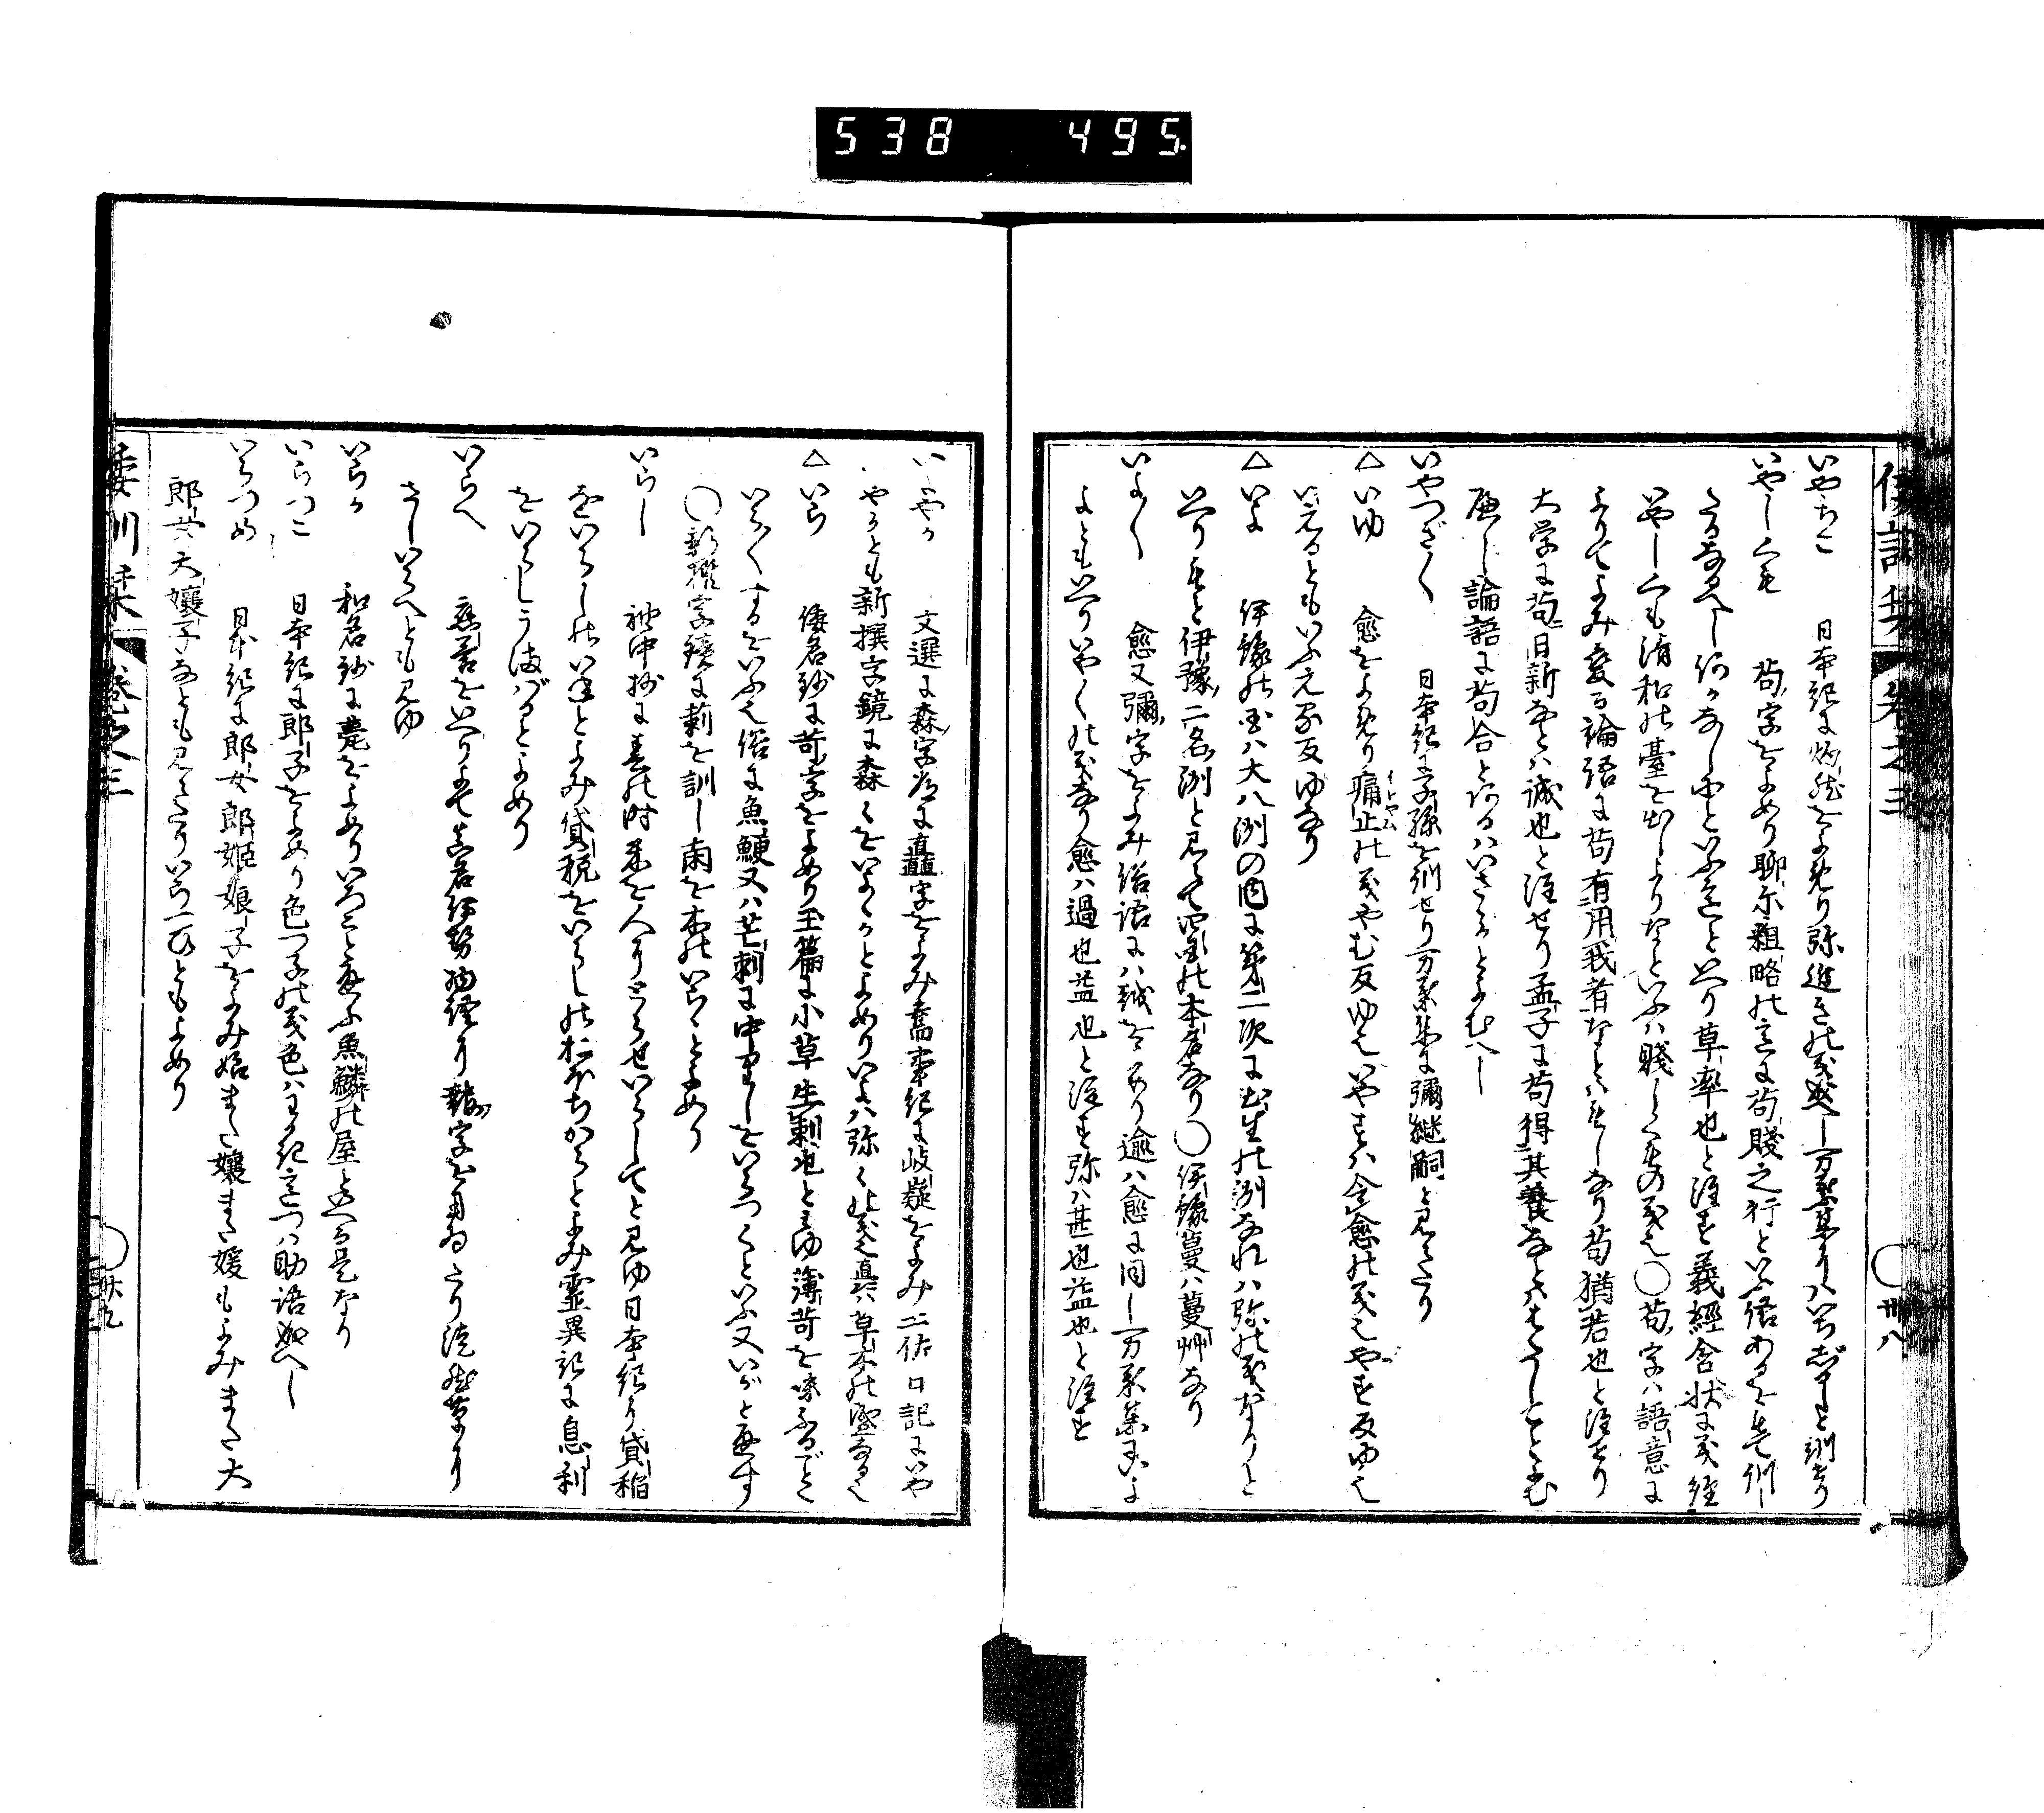 538 495.
いやちこ 日本紀に灼然をよめり弥近きの義成へし万葉集にハいちじろしと訓せり
いやしくも 苟字をよめり聊尓粗略の意に苟賤之行といふ語あるをもて訓し
たるなるへし何かなしにといふ意といへり草率也と注す義經含状に義經
いやしくも清和の臺を出しよりなといふハ賤しくもの義也○苟字ハ語意に
よりてよみ变る論語に苟有用我者なとハもしなり苟猶若也と注せり
大学に苟日新なとハ誠也と注せり孟子に苟得其養なとハまことにとよむ
へし論語に苟合とあるハいさゝかとよむへし
いやつぎ〳〵 日本紀に子孫を訓せり万葉集に彌継嗣と見えたり
△いゆ 愈をよめり痛止の義やむ反ゆ也いやすハ令愈の義也やす反ゆ也
いえるともいふえる反ゆなり
△いよ 伊豫の国ハ大八洲の内に第二次に出生の洲なれハ弥の義なりと
いへりもと伊豫二名洲と見えて四国の本名なり○伊豫蔓ハ蔓艸なり
いよ〳〵 愈又彌字をよみ俗語にハ越をよめり逾ハ愈に同し万葉集にいよ
よともいへりいや〳〵の義なり愈ハ過也益也と注す弥ハ甚也益也と注す
倭訓栞 卷之三 ○卅八
いよゝか 文選に森字又矗字をよみ舊事紀に岐嶷をよみ土佐日記にいや
やかとも新撰字鏡に森〳〵をいよゝかとよめりいよハ弥〳〵の義也矗ハ草木の盛なる也
△いら 倭名鈔に苛字をよめり玉篇に小草生刺也と見ゆ薄苛を味ふるごと
いら〳〵するをいふ也俗に魚鯁又ハ芒刺に中りしをいらつくといふ又いがと通す
○新撰字鏡に莿を訓し朿を木のいらゝとよめり
いらし 袖中抄に春の時米を人にとらせいらしてと見ゆ日本紀に貸稲
をいらしのいねとよみ貸税をいらしのおほちからとよみ霊異記に息利
をいらしうはがるとよめり
いらへ 應答をいへりよて真名伊勢物語に諾字を用ゐたり徒然草に
さしいらへとも見ゆ
いらか 和名鈔に甍をよめりいろこと通ふ魚鱗の屋といへる是なり
いらつこ 日本紀に郎子をよめり色つ子の義色ハほめ詞つハ助語成へし
いらつめ 日本紀に郎女郎姫娘子をよみ娘また孃また媛もよみまた大
郎女大孃子なとも見えたりいらつひともよめり
倭訓栞 卷之三